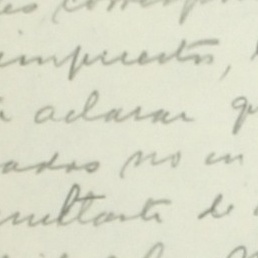 es correspon
impuestos,
a aclarar qu
ados no en
esultante de